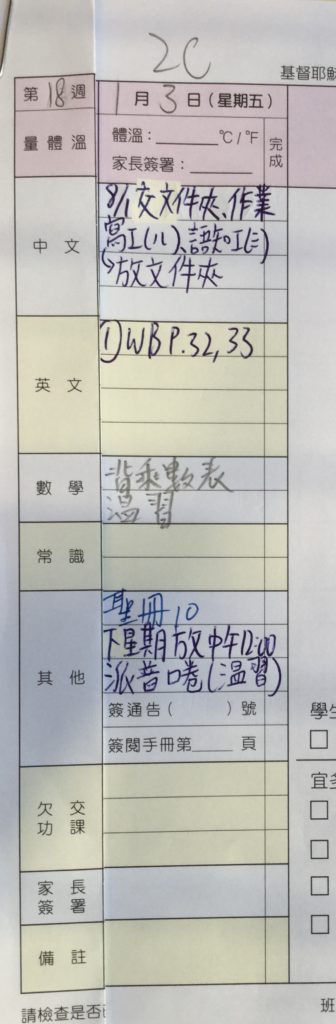 2C
基督耶穌
第18週
1月3日(星期五)
量體溫
體溫：______℃/℉
家長簽署：______
完成
中文
8/1交文件夾、作業
寫工(八)、語知工(三)
放文件夾
英文
①WB P.32,33
數學
背乘數表
溫習
常識
其他
聖冊10
下星期放中午12:00
派普口卷(溫習)
簽通告(　　)號
簽閱手冊第____頁
學生
欠交功課
宜多
家長簽署
備註
請檢查是否
班